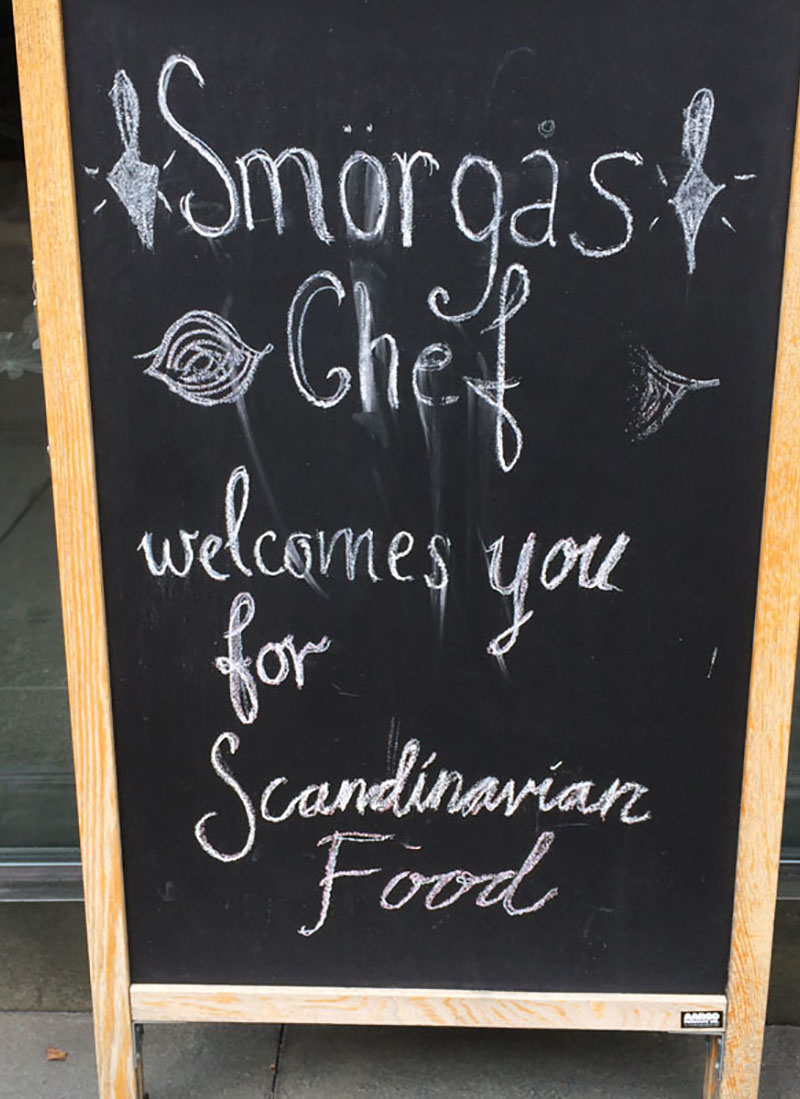 Smörgås
Chef
welcomes you
for
Scandinavian
Food
AARCO